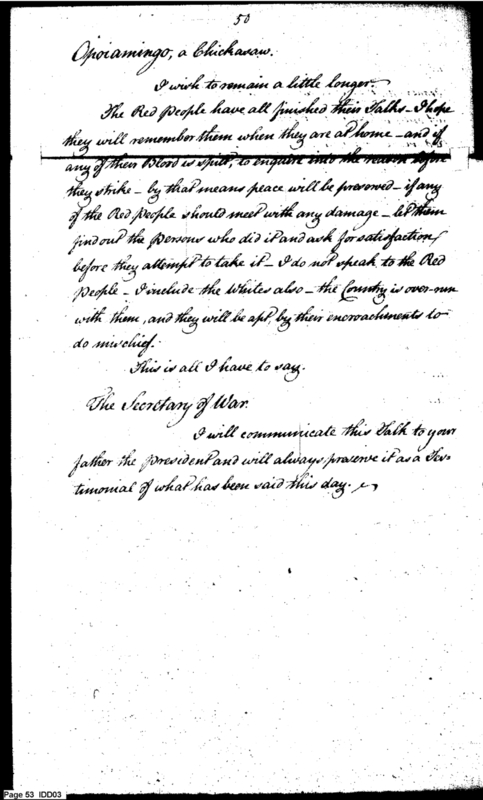 50
Opoiamingo, a Chickasaw.
I wish to remain a little longer.
The Red People have all finished their Talks - I hope
they will remember them when they are at home - and if
any of their Blood is spilt, to enquire into the reason before
they strike - by that means peace will be preserved - if any
of the Red people should meet with any damage - let them
find out the Persons who did it and ask for satisfaction,
before they attempt to take it - I do not speak to the Red
People - I include the Whites also - the Country is over-run
with them, and they will be apt, by their encroachments to
do mischief.
This is all I have to say.
The Secretary of War.
I will communicate this Talk to your
father the President and will always preserve it as a Tes-
timonial of what has been said this day.
Page 53 IDD03